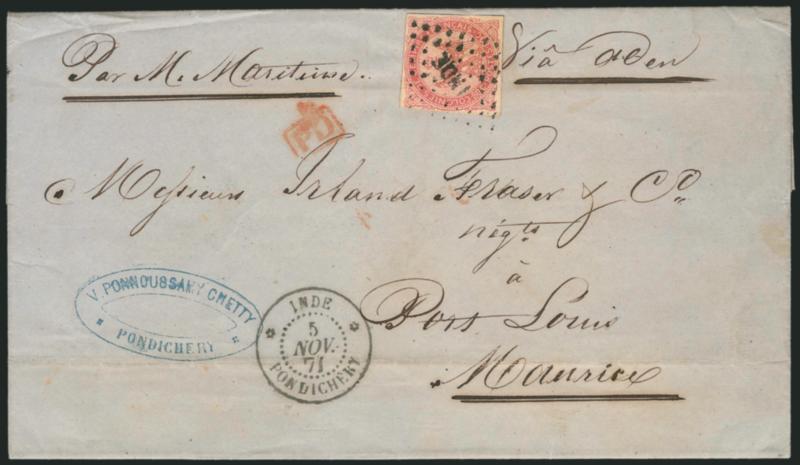 Par M. Maritime.
Viâ Aden
INDE
PD
Messieurs Irland Fraser & Cº
négts
à
Port Louis
Maurice
V. PONNOUSSAMY CHETTY
PONDICHERY
INDE
5
NOV.
71
PONDICHERY